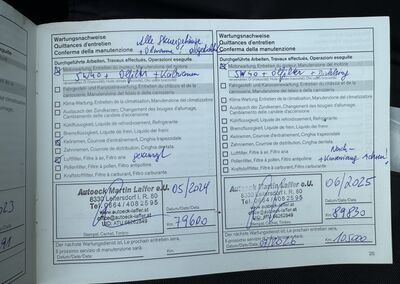 Wartungsnachweise
Quittances d'entretien
Conferma della manutenzione
Alle
Durchgeführte Arbeiten, Travaux effectués, Operazioni eseguite
Motorwartung, Entretien du moteur, Manutenzione del motore
5W40 + Ölfilter +
Fahrgestell- und Karosseriewartung, Entretien du châssis et de la
carrosserie, Manutenzione del telaio e della carrozzeria
Klima-Wartung, Entretien de climatisation, Manutenzione del climatizzatore
Austausch der Zündkerzen, Changement des bougies d'allumage,
Cambiamento delle candele d'accensione
Kühlflüssigkeit, Liquide de refroidissement, Refrigerante
Bremsflüssigkeit, Liquide de frein, Liquido dei freni
Keilriemen, Courroie d'entraînement, Cinghia trapezoidale
Zahnriemen, Courroie de distribution, Cinghia dentata
Luftfilter, Filtre à air, Filtro aria
Pollenfilter, Filtre à pollen, Filtro antipolline
Kraftstofffilter, Filtre à carburant, Filtro carburante
Autoeck Martin Laffer e.U.
8330 Leitersdorf i. R. 80
Tel. 0664/4082595
www.autoeck-laffer.at
05/2024
Datum/Date/Data
79600
Km
Stempel, Cachet, Timbro
Der nächste Wartungsdienst ist, Le prochain entretien sera,
Il prossimo servizio di manutenzione sarà:
Datum/Date/Data
Km
Wartungsnachweise
Quittances d'entretien
Conferma della manutenzione
Durchgeführte Arbeiten, Travaux effectués, Operazioni eseguite
Motorwartung, Entretien du moteur, Manutenzione del motore
5W40 + Ölfilter +
Fahrgestell- und Karosseriewartung, Entretien du châssis et de la
carrosserie, Manutenzione del telaio e della carrozzeria
Klima-Wartung, Entretien de climatisation, Manutenzione del climatizzatore
Austausch der Zündkerzen, Changement des bougies d'allumage,
Cambiamento delle candele d'accensione
Kühlflüssigkeit, Liquide de refroidissement, Refrigerante
Bremsflüssigkeit, Liquide de frein, Liquido dei freni
Keilriemen, Courroie d'entraînement, Cinghia trapezoidale
Zahnriemen, Courroie de distribution, Cinghia dentata
Luftfilter, Filtre à air, Filtro aria
Pollenfilter, Filtre à pollen, Filtro antipolline
Kraftstofffilter, Filtre à carburant, Filtro carburante
Autoeck Martin Laffer e.U.
8330 Leitersdorf i. R. 80
Tel. 0664/4082595
www.autoeck-laffer.at
06/2025
Datum/Date/Data
89830
Km
Stempel, Cachet, Timbro
Der nächste Wartungsdienst ist, Le prochain entretien sera,
Il prossimo servizio di manutenzione sarà:
Datum/Date/Data
Km
105000
25